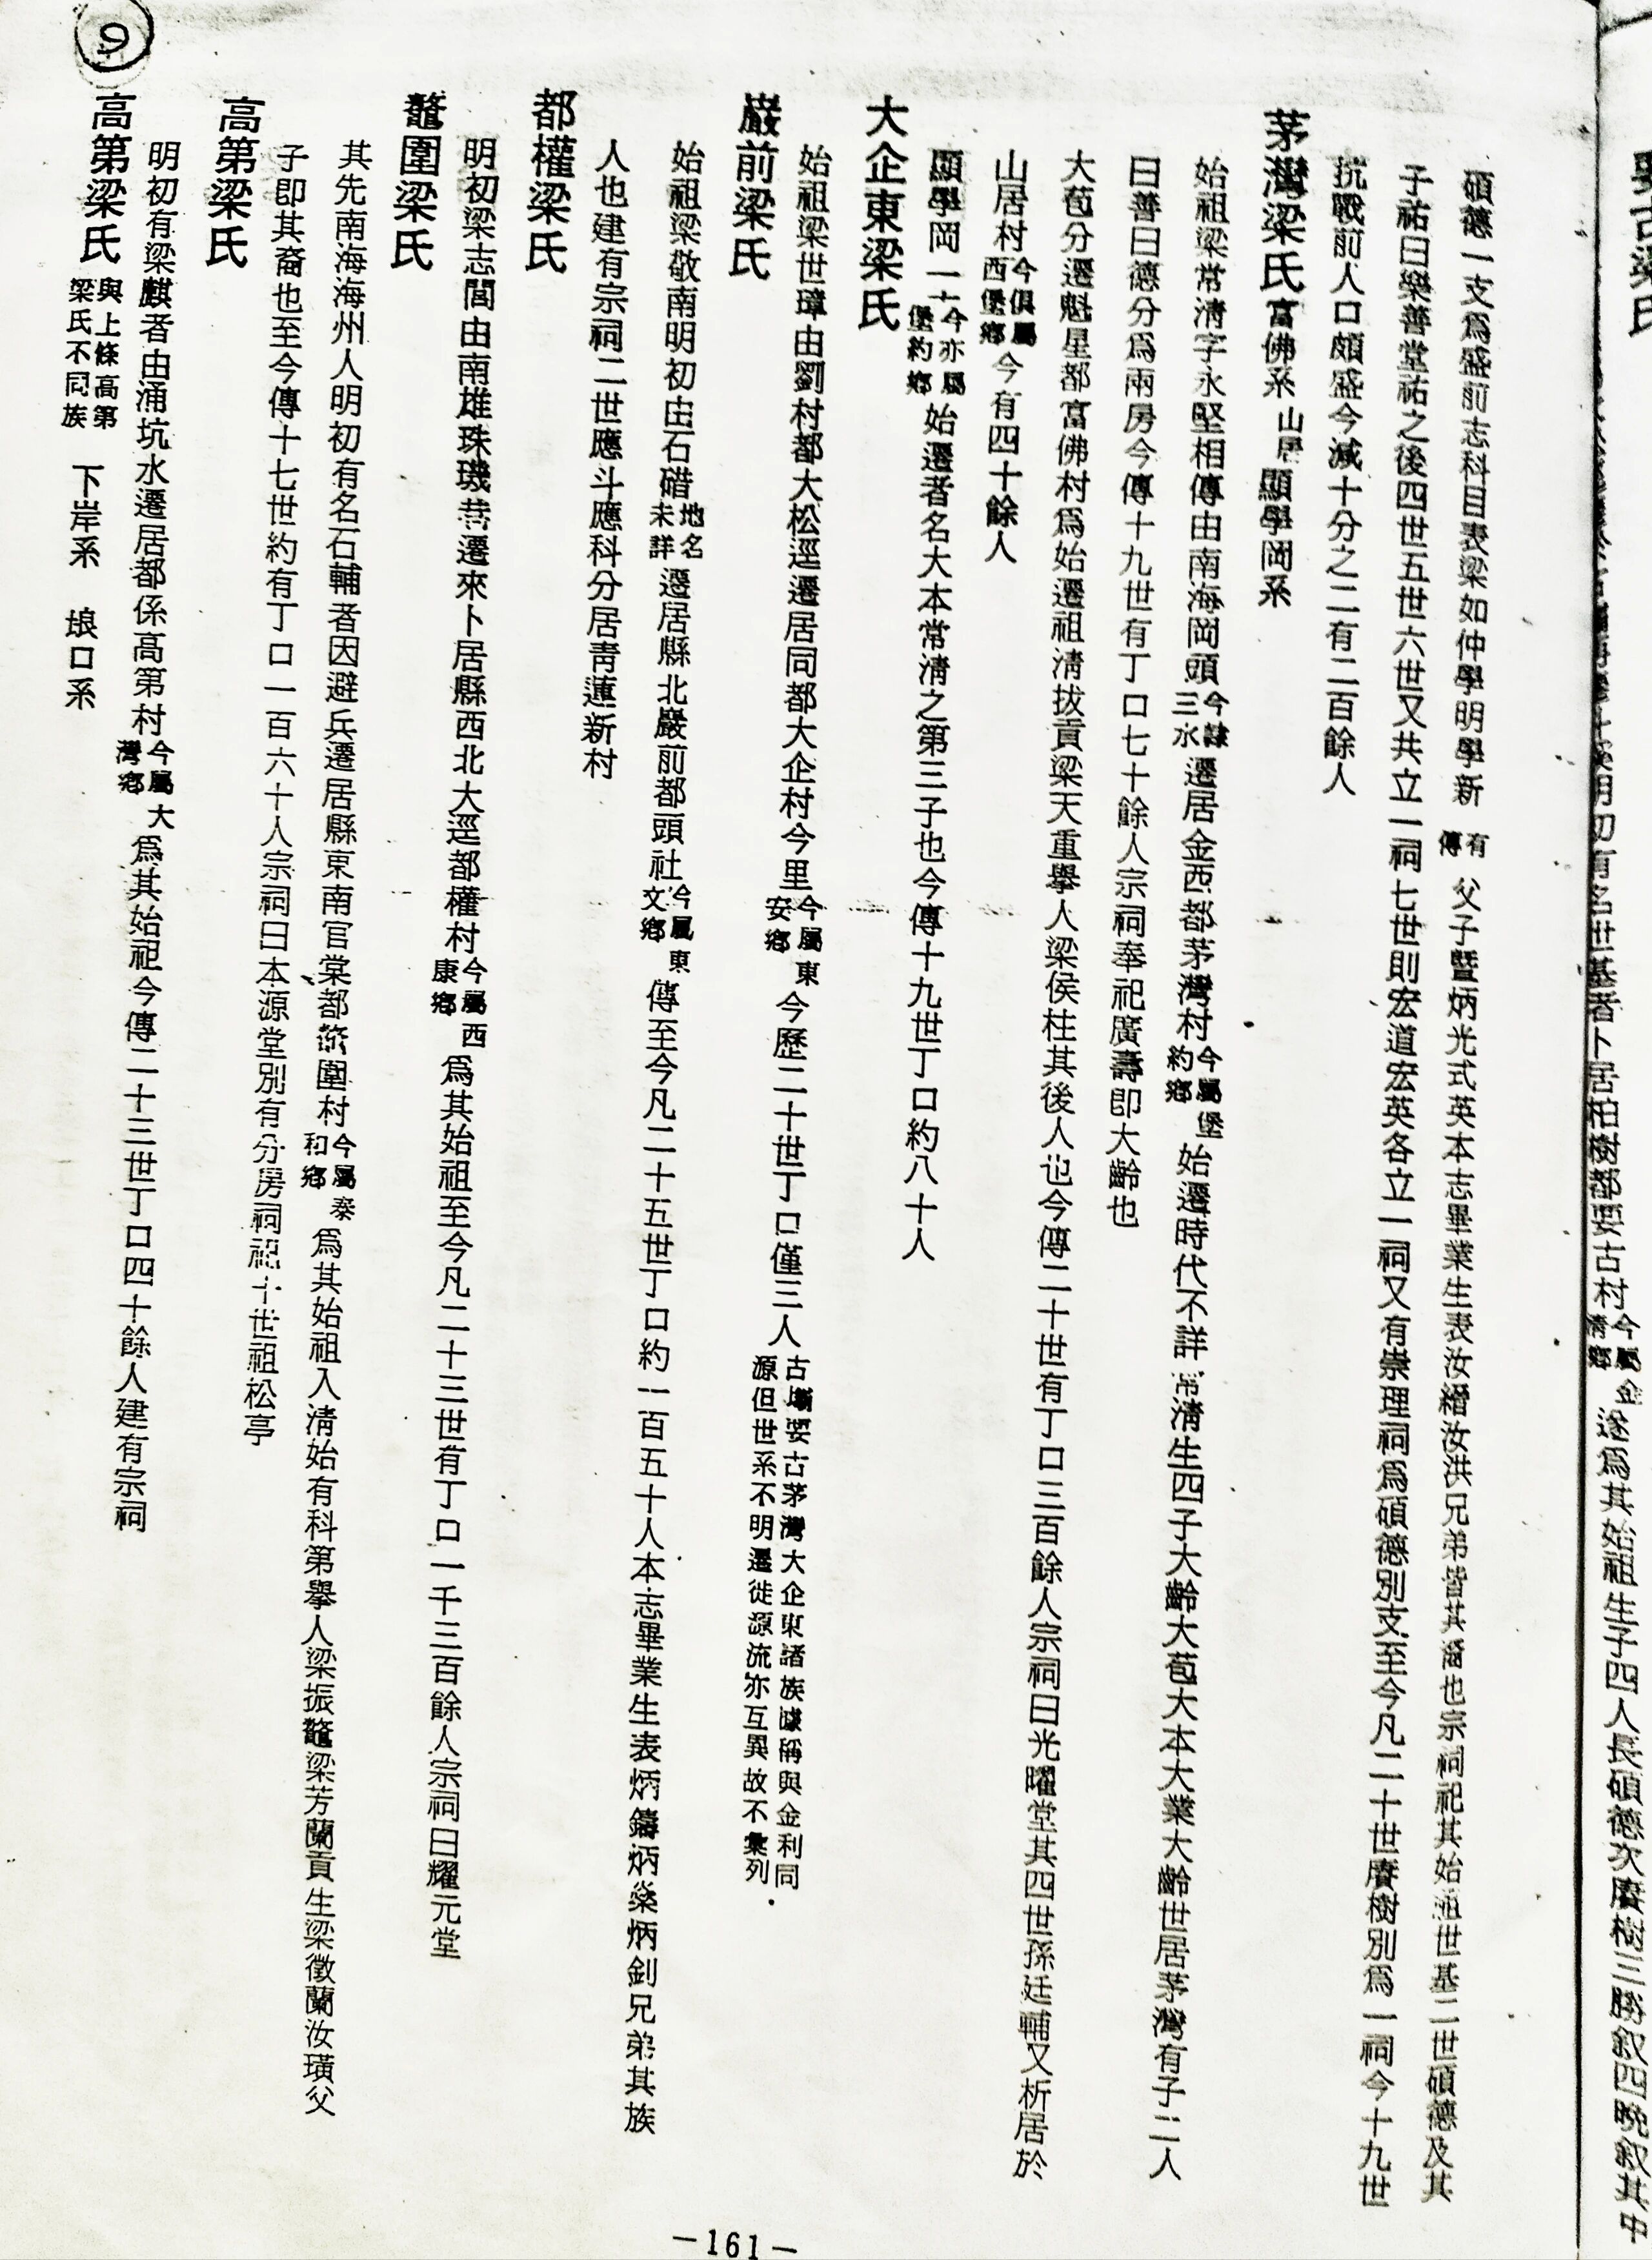 明初有名世基者卜居柏樹都要古村今屬金清鄉遂爲其始祖生子四人長碩德次賡樹三勝叙四晚叙其中
碩德一支爲盛前志科目表梁如仲學明學新有傳父子暨炳光式英本志畢業生表汝縉汝洪兄弟皆其裔也宗祠祀其始祖世基二世碩德及其
子祐曰樂善堂祐之後四世五世六世又共立一祠七世則宏道宏英各立一祠又有崇理祠爲碩德別支至今凡二十世賡樹別爲一祠今十九世
抗戰前人口頗盛今減十分之二有二百餘人
茅灣梁氏富佛系 山居顯學岡系
始祖梁常清字永堅相傳由南海岡頭今隸三水遷居金西都茅灣村今屬堡約鄉始遷時代不詳常清生四子大齡大苞大本大業大齡世居茅灣有子二人
曰善曰德分爲兩房今傳十九世有丁口七十餘人宗祠奉祀廣壽即大齡也
大苞分遷魁星都富佛村爲始遷祖清拔貢梁天重擧人梁侯柱其後人也今傳二十世有丁口三百餘人宗祠曰光曜堂其四世孫廷輔又析居於
山居村今俱屬西堡鄉今有四十餘人
顯學岡一今亦屬堡約鄉始遷者名大本常清之第三子也今傳十九世丁口約八十人
大企東梁氏
始祖梁世璋由劉村都大松逕遷居同都大企村今里今屬東安鄉今歷二十世丁口僅三人古塴要古茅灣大企東諸族據稱與金利同源但世系不明遷徙源流亦互異故不彙列
巖前梁氏
始祖梁敬南明初由石碏地名未詳遷居縣北巖前都頭社今屬東文鄉傳至今凡二十五世丁口約一百五十人本志畢業生表炳鑄炳燊炳釗兄弟其族
人也建有宗祠二世應斗應科分居靑蓮新村
都權梁氏
明初梁志閭由南雄珠璣巷遷來卜居縣西北大逕都權村今屬西康鄉爲其始祖至今凡二十三世有丁口一千三百餘人宗祠曰耀元堂
鼇圍梁氏
其先南海海州人明初有名石輔者因避兵遷居縣東南官棠都鼇圍村今屬泰和鄉爲其始祖入清始有科第擧人梁振鼇梁芳蘭貢生梁徵蘭汝璜父
子即其裔也至今傳十七世約有丁口一百六十人宗祠曰本源堂別有分房祠祀十世祖松亭
高第梁氏
明初有梁麒者由涌坑水遷居都係高第村今屬大灣鄉爲其始祖今傳二十三世丁口四十餘人建有宗祠
高第梁氏與上條高第梁氏不同族 下岸系 埌口系
9
—161—